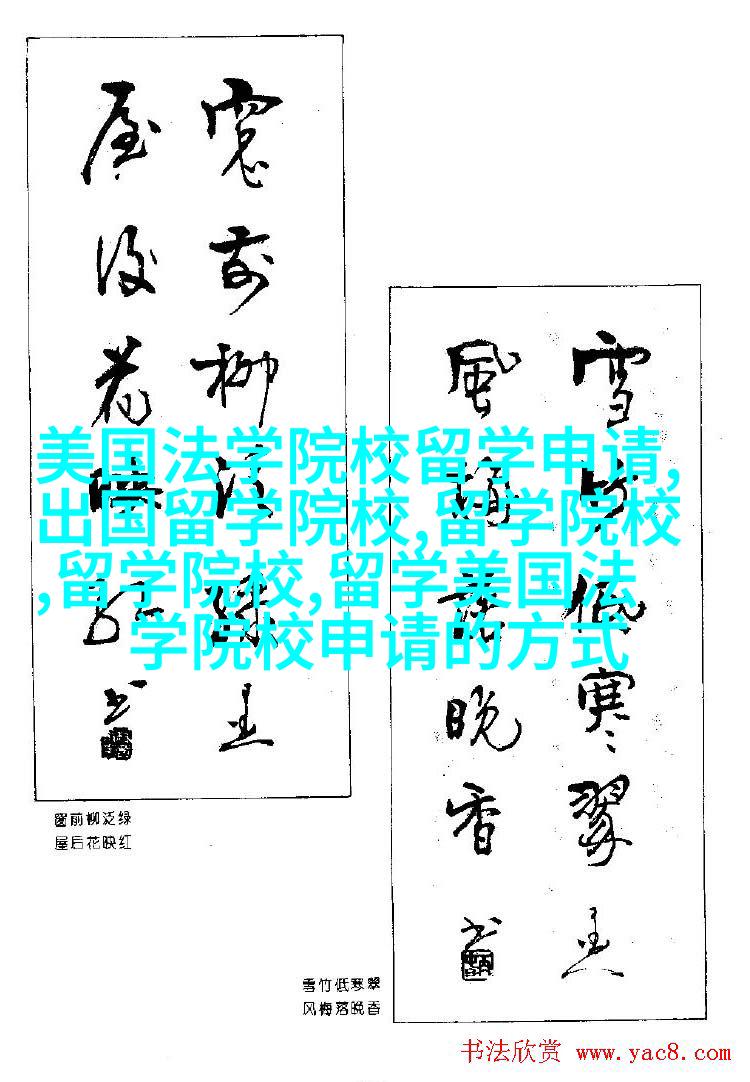 窓前柳泛緑
屋後花映紅
书
美国法学院校留学申请,
出国留学院校,留学院校
,留学院校,留学美国法
学院校申请的方式
雪竹低寒翠
風梅落晚香
书
窗前柳泛绿
屋后花映红
雪竹低寒翠
风梅落晚香
书法欣赏 www.yac8.com